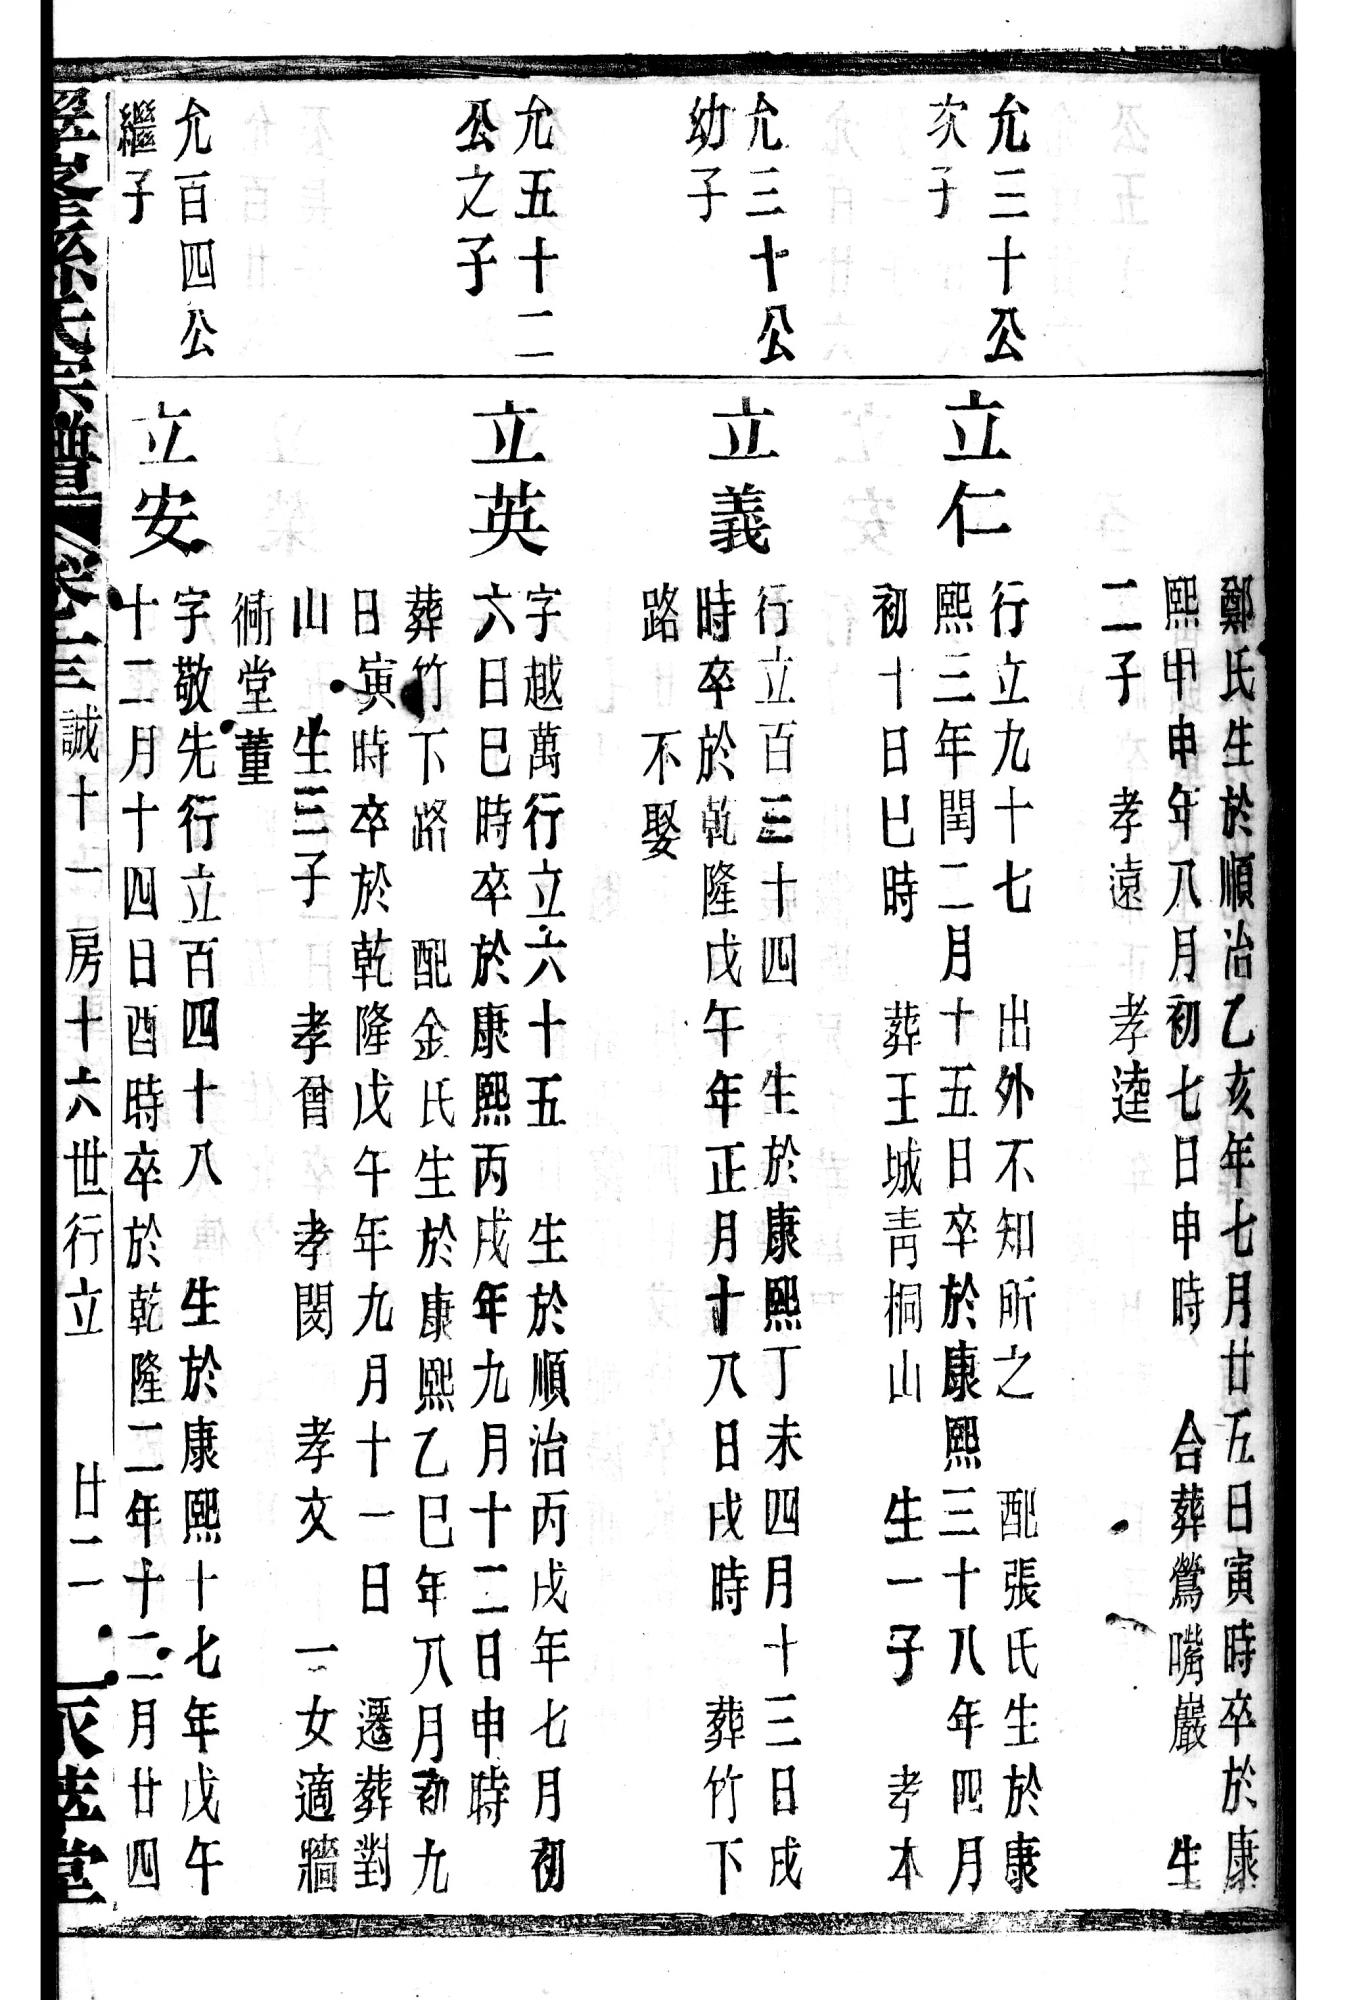 鄭氏生於順治乙亥年七月廿五日寅時卒於康
熙甲申年八月初七日申時 合葬鶯嘴巖 生
二子 孝遠 孝逵
允三十公
次子
立仁
行立九十七 出外不知所之 配張氏生於康
熙三年閏二月十五日卒於康熙三十八年四月
初十日巳時 葬王城青桐山 生一子 孝本
允三十公
幼子
立義
行立百三十四 生於康熙丁未四月十三日戌
時卒於乾隆戊午年正月十八日戌時 葬竹下
路 不娶
允五十二
公之子
立英
字越萬行立六十五 生於順治丙戌年七月初
六日巳時卒於康熙丙戌年九月十二日申時
葬竹下路 配金氏生於康熙乙巳年八月初九
日寅時卒於乾隆戊午年九月十一日 遷葬對
山 生三子 孝曾 孝閔 孝文 一女適牆
衕堂董
允百四公
繼子
立安
字敬先行立百四十八 生於康熙十七年戊午
十二月十四日酉時卒於乾隆二年十二月廿四
孫氏宗譜 卷十三 誠十一房十六世行立 廿二 堂